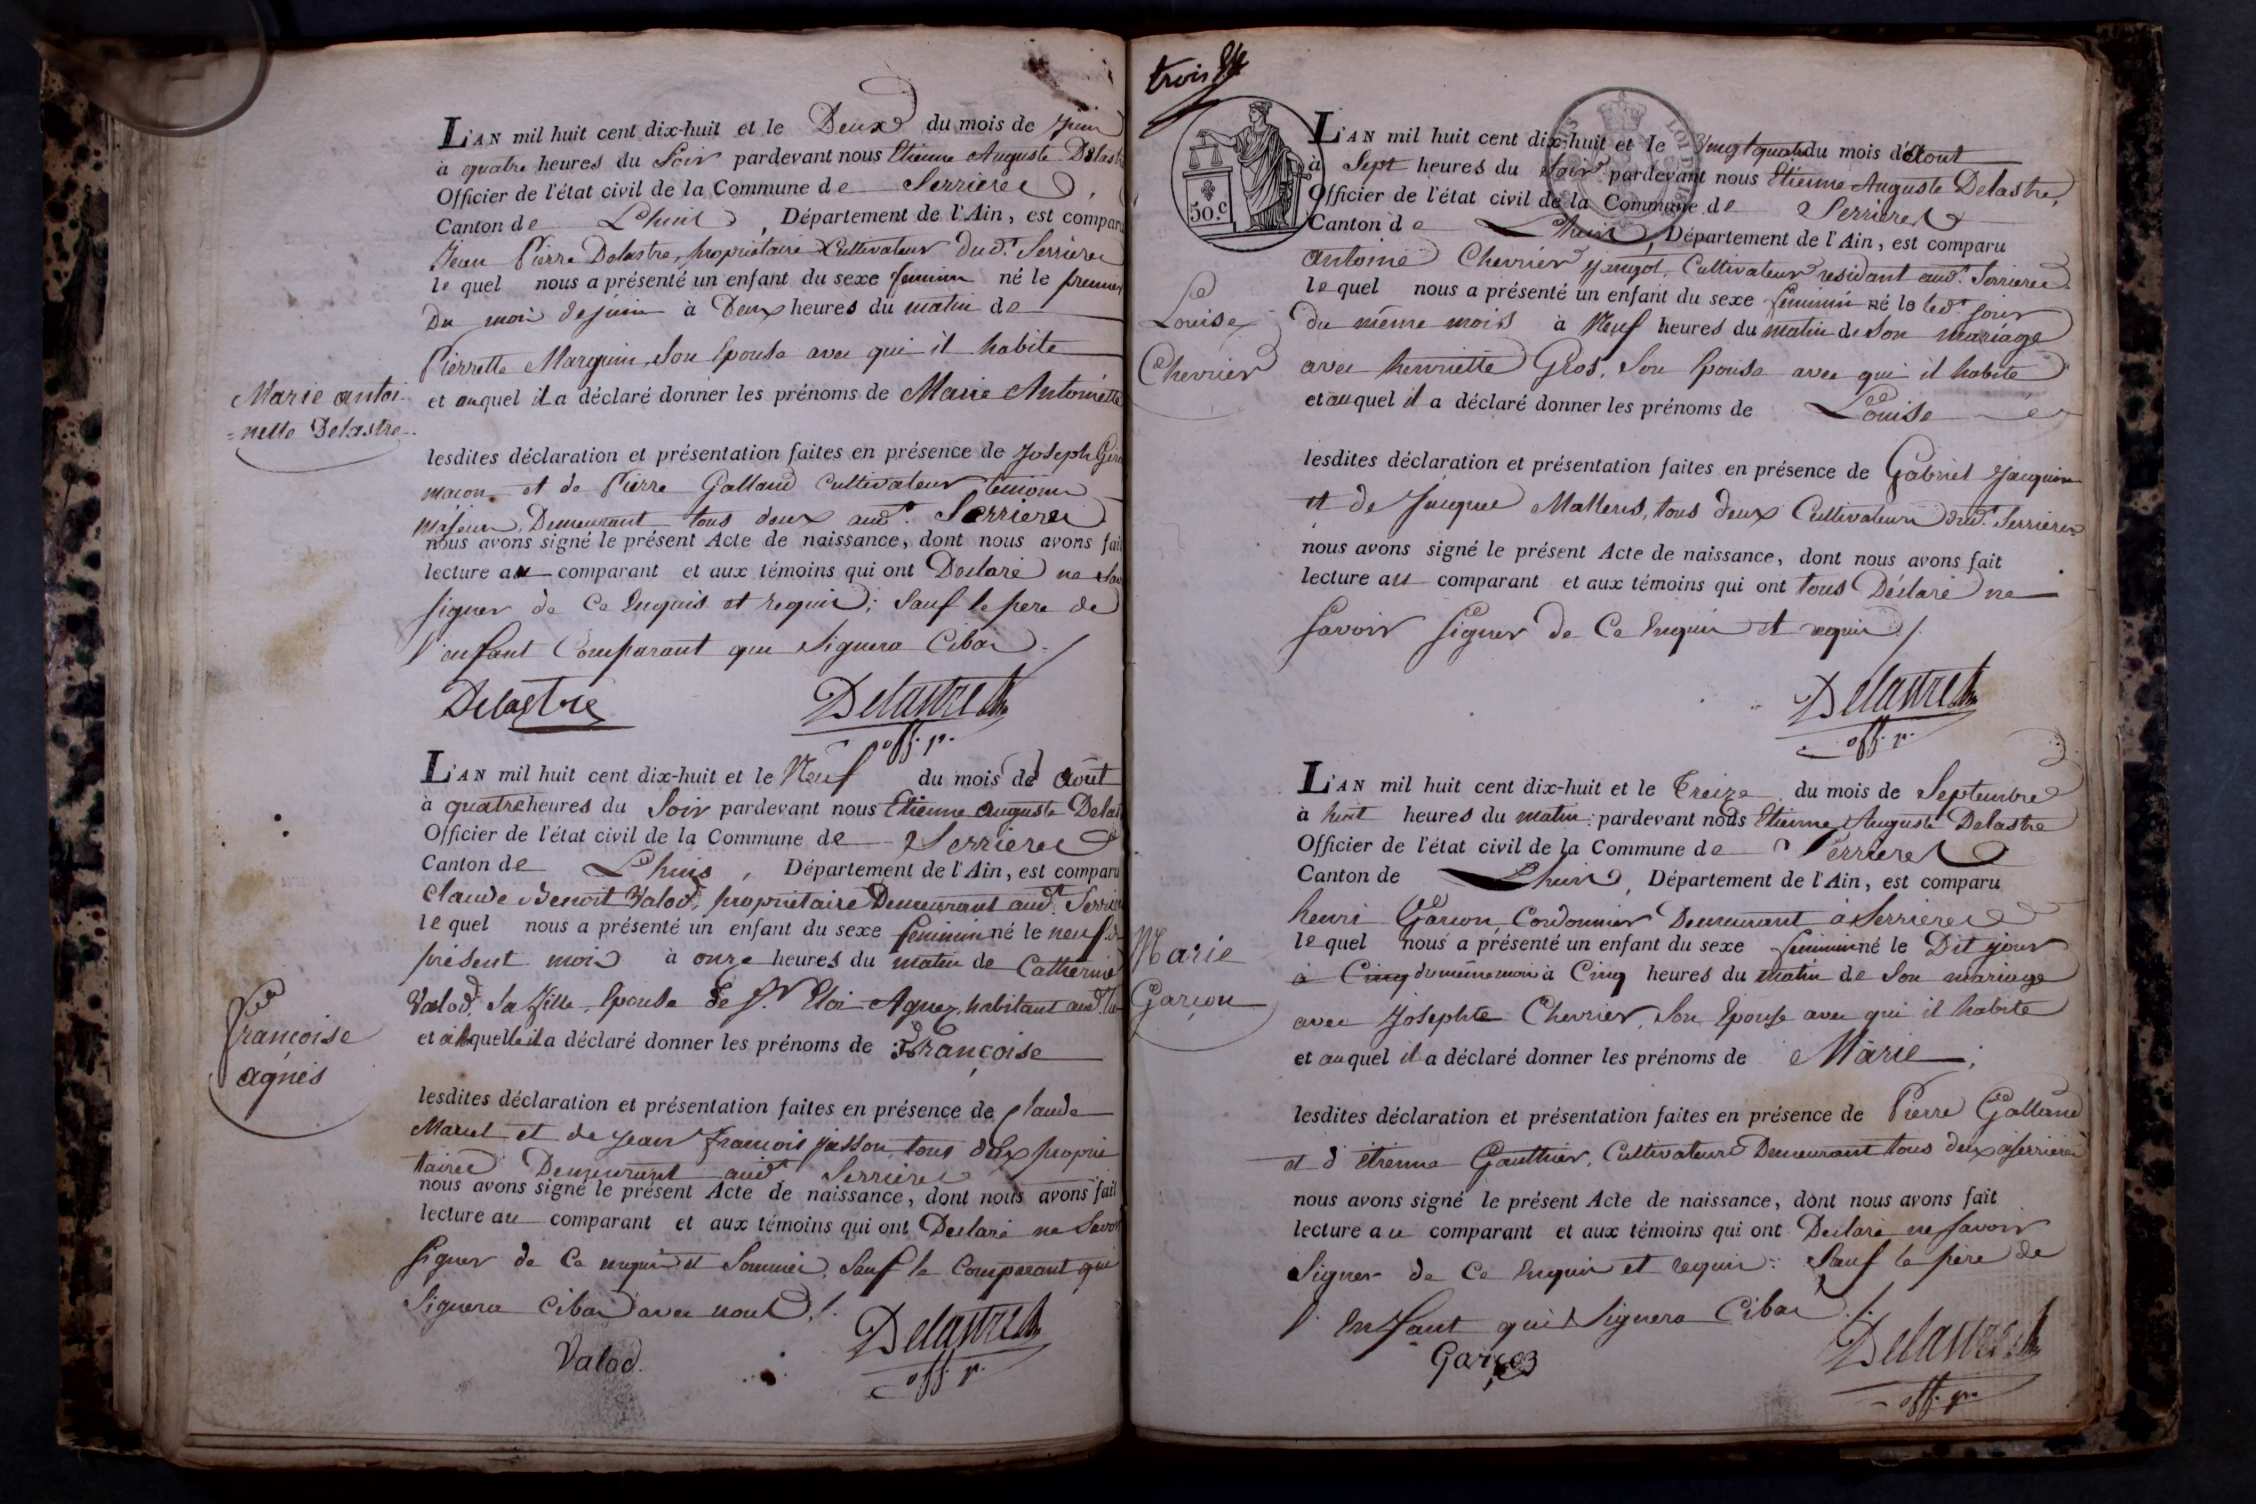 L'AN mil huit cent dix-huit et le Deux du mois de Juin
à quatre heures du Soir pardevant nous Etienne Auguste Delast
Officier de l'état civil de la Commune de Serrieres
Canton de Lhuis, Département de l'Ain, est compar
Jean Pierre Delastre, propriétaire Cultivateur dud.t Serrieres
le quel nous a présenté un enfant du sexe feminin né le premier
Du mois de juin à Deux heures du matin de
Pierrette Marquin, Son Epouse avec qui il habite
Marie antoi-
=nette Delastre
et auquel il a déclaré donner les prénoms de Marie Antoinette
lesdites déclaration et présentation faites en présence de Joseph
macon et de Pierre Galland Cultivateur temoins
majeurs, Demeurant tous deux aud.t Serrieres
nous avons signé le présent Acte de naissance, dont nous avons fait
lecture au comparant et aux témoins qui ont Declaré ne Sav
signer de Ce Enquis et requis; Sauf le pere de
l'enfant Comparant qui Signera Cibas ./
Delastre Delastre
off. p.
L'AN mil huit cent dix-huit et le Neuf du mois de Août
à quatre heures du Soir pardevant nous Etienne Auguste Delas
Officier de l'état civil de la Commune de Serrieres
Canton de Lhuis, Département de l'Ain, est comparu
Claude Benoit Valod, propriétaire Demeurant aud.t Serrier
le quel nous a présenté un enfant du sexe feminin né le neuf
présent mois à onze heures du matin de Catherine
Valod, Sa fille, Epouse de S.r Eloi Agnez, habitant aud.t
Françoise
agnès
et à laquelle il a déclaré donner les prénoms de Françoise
lesdites déclaration et présentation faites en présence de Claude
Maruel et de Jean François Jasson, tous deux proprie
taires Demeurant aud.t Serrieres
nous avons signé le présent Acte de naissance, dont nous avons fait
lecture au comparant et aux témoins qui ont Declaré ne Savoir
signer de Ce enquis et Sommés, Sauf le Comparant qui
Signera cibas avec nous ./.
Valod. Delastre
off. p.
trois
50.c
L'AN mil huit cent dix-huit et le vingt quatre du mois d'Aout
à Sept heures du Soir pardevant nous Etienne Auguste Delastre,
Officier de l'état civil de la Commune de Serrieres
Canton de Lhuis, Département de l'Ain, est comparu
antoine Chevrier Cultivateur residant aud.t Serrieres
le quel nous a présenté un enfant du sexe feminin né le led.t jour
du même mois à Neuf heures du matin de Son mariage
Louise
Chevrier
avec henriette Gros, Son Epouse avec qui il habite
et auquel il a déclaré donner les prénoms de Louise
lesdites déclaration et présentation faites en présence de Gabriel Janquin
et de Jacques Mallens, tous deux Cultivateurs dud.t Serrieres
nous avons signé le présent Acte de naissance, dont nous avons fait
lecture au comparant et aux témoins qui ont tous Déclaré ne
Savoir Signer de Ce Enquis et requis ./.
Delastre
off. p.
L'AN mil huit cent dix-huit et le Treize du mois de Septembre
à huit heures du matin pardevant nous Etienne Auguste Delastre
Officier de l'état civil de la Commune de Serrieres
Canton de Lhuis, Département de l'Ain, est comparu
henri Garcon, Cordonnier Demeurant à Serrieres
le quel nous a présenté un enfant du sexe feminin né le Dit jour
à Cinq du même mois à Cinq heures du matin de Son mariage
Marie
Garcon
avec Josephte Chevrier, Son Epouse avec qui il habite
et auquel il a déclaré donner les prénoms de Marie
lesdites déclaration et présentation faites en présence de Pierre Galland
et d'étienne Gauthier, Cultivateurs Demeurant tous deux à Serrieres
nous avons signé le présent Acte de naissance, dont nous avons fait
lecture au comparant et aux témoins qui ont Declaré ne Savoir
Signer de Ce Enquis et requis: Sauf le père de
l'Enfant qui Signera Cibas ./.
Delastre
off. p.